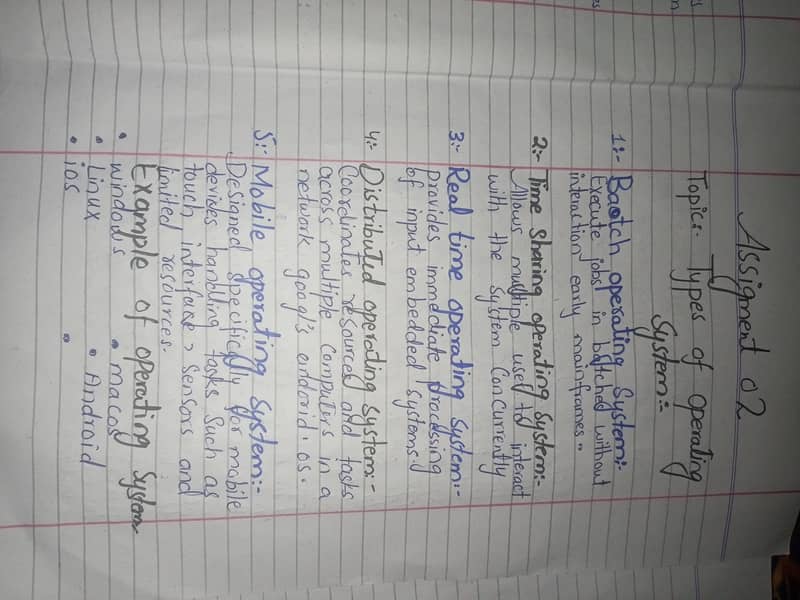 Assigment 02
Topic:- Types of operating
System:-
1:- Baetch operating System:-
Execute jobs in batched without
interaction early mainframes..
2:- Time Sharing operating System:-
Allows multiple used to interact
with the System Concurrently
3:- Real time operating System:-
provides immediate processing
of input embedded systems.
4:- Distributed operating System:-
Coordinates resources and tasks
across multiple computers in a
network goog's android.os.
5:- Mobile operating System:-
Designed specifically for mobile
devises handling tasks Such as
touch interface, Sensors and
limited resources.
Example of operating System
• windows • macos
• Linux • Android
• ios •